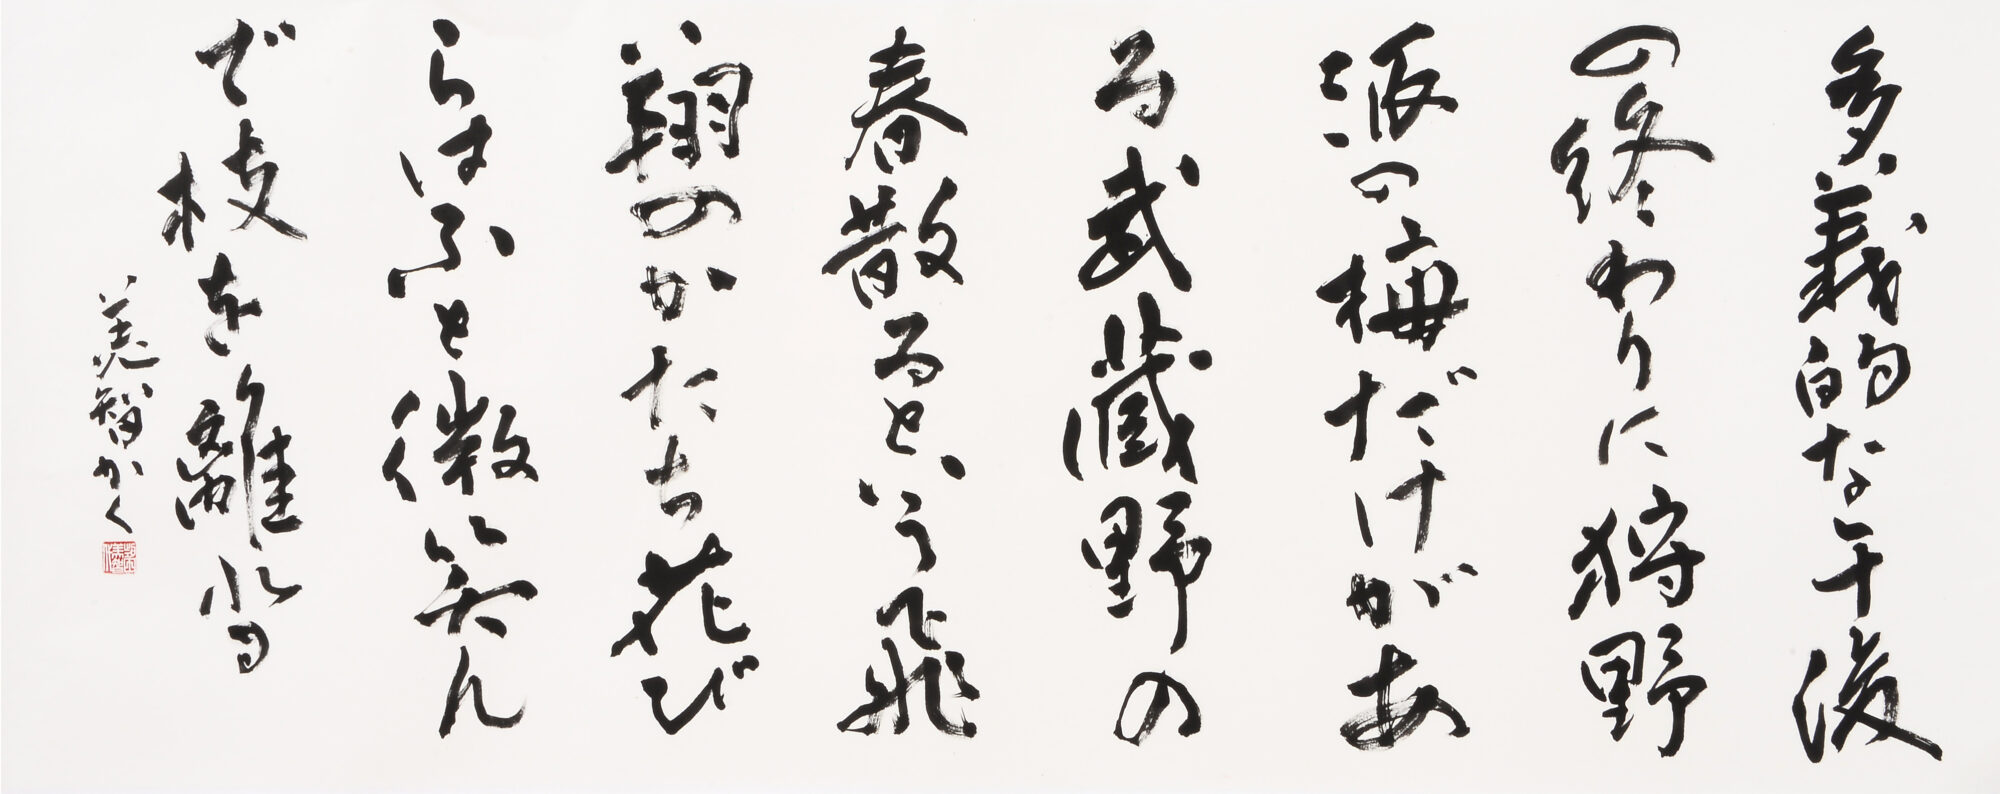 多義的な午後
の終わりに狩野
派の梅だけがあ
る武蔵野の
春散るという飛
翔のかたち花び
らはふと微笑ん
で枝を離れる
智かく